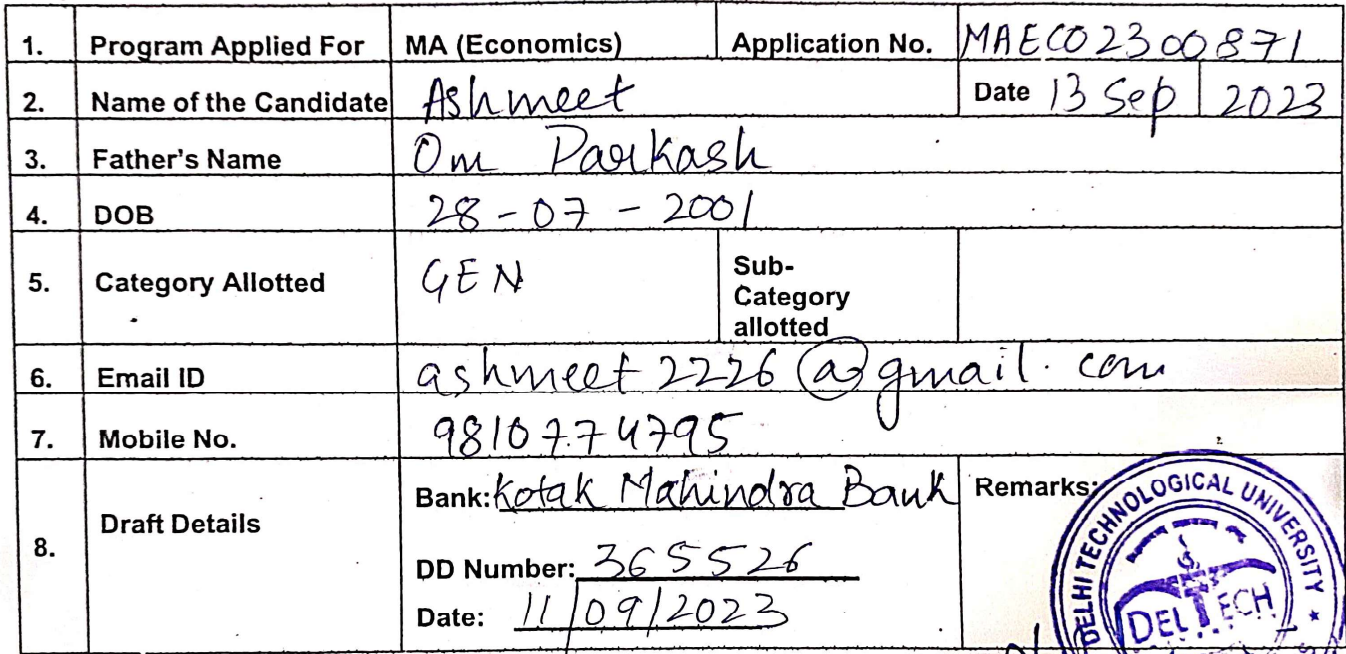 1. Program Applied For MA (Economics) Application No. MAECO2300871
2. Name of the Candidate Ashmeet Date 13 Sep 2023
3. Father's Name Om Parkash
4. DOB 28-07-2001
5. Category Allotted GEN Sub-
Category
allotted
6. Email ID ashmeet2226@gmail.com
7. Mobile No. 9810774795
8. Draft Details Bank: Kotak Mahindra Bank Remarks:
DD Number: 365526
Date: 11/09/2023
DELHI TECHNOLOGICAL UNIVERSITY
DELTECH